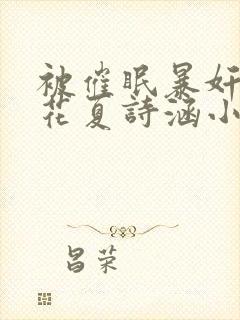 被催眠暴奸
花夏詩涵小
昌荣